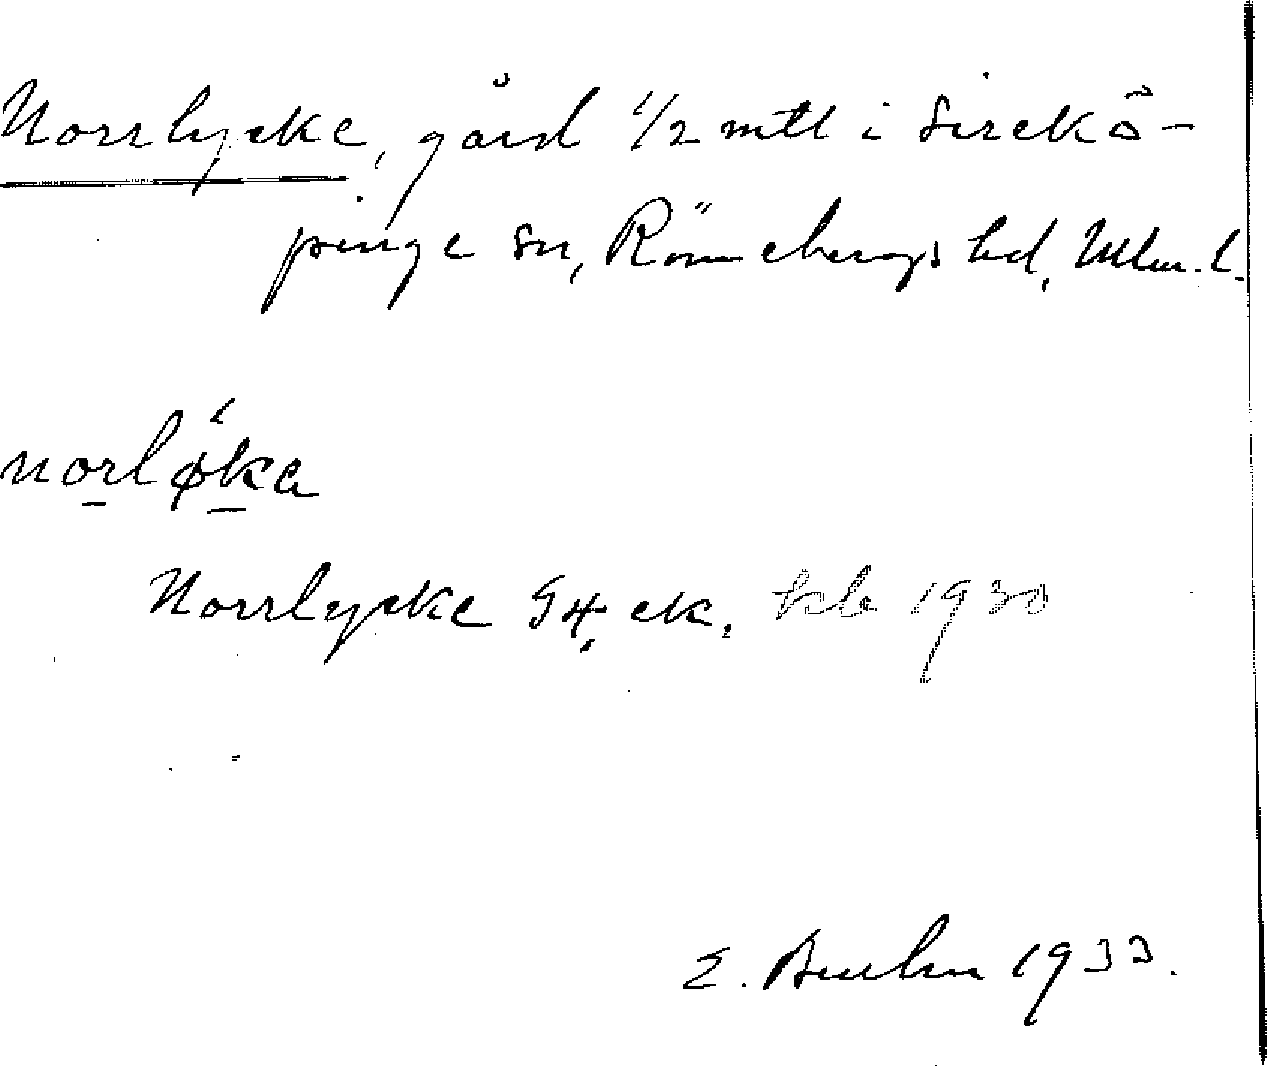 Norrlycke, gård 1/2 mtl i Sirekö-
pinge sn, Rönnebergs hd, Mlm. l.
norlø´ka
Norrlycke G4 ek.
1930
E. 1933.